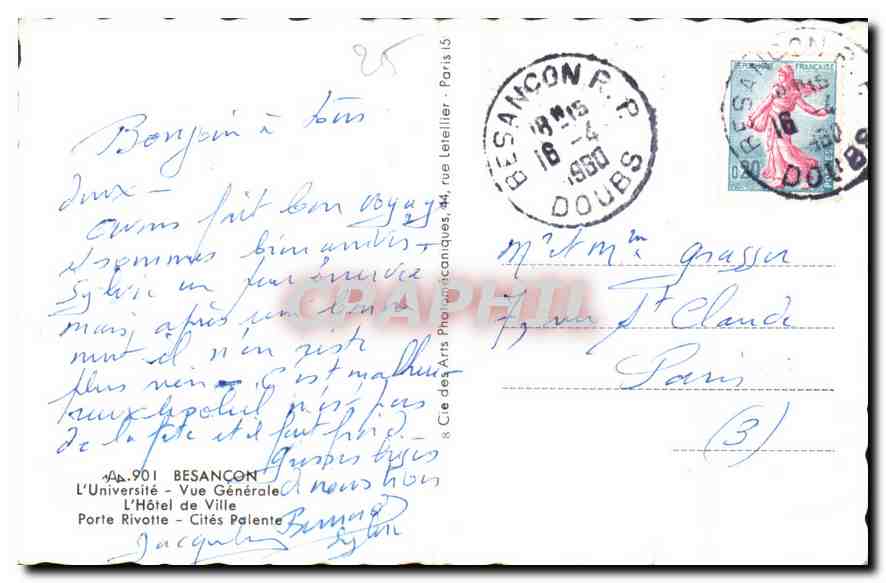 25
Bonjour à tous
deux -
Avons fait bon voyage
et sommes bien arrivés -
Sylvie un peu énervée
mais après une bonne
nuit il n'en reste
plus rien - C'est malheu-
reux le soleil n'est pas
de la fête et il fait froid -
Grosses bises
à vous tous
Jacqueline Bernard
Sylvie
901 BESANÇON
L'Université - Vue Générale
L'Hôtel de Ville
Porte Rivotte - Cités Palente
8 Cie des Arts Photomécaniques, 44, rue Letellier - Paris 15
CPAPHIL
BESANCON R.P.
18H15
16-4
1960
DOUBS
REPUBLIQUE FRANÇAISE
0,20
BESANCON R.P.
16-4
1960
DOUBS
Mr et Mme Grasser
7, rue St Claude
Paris
(3)